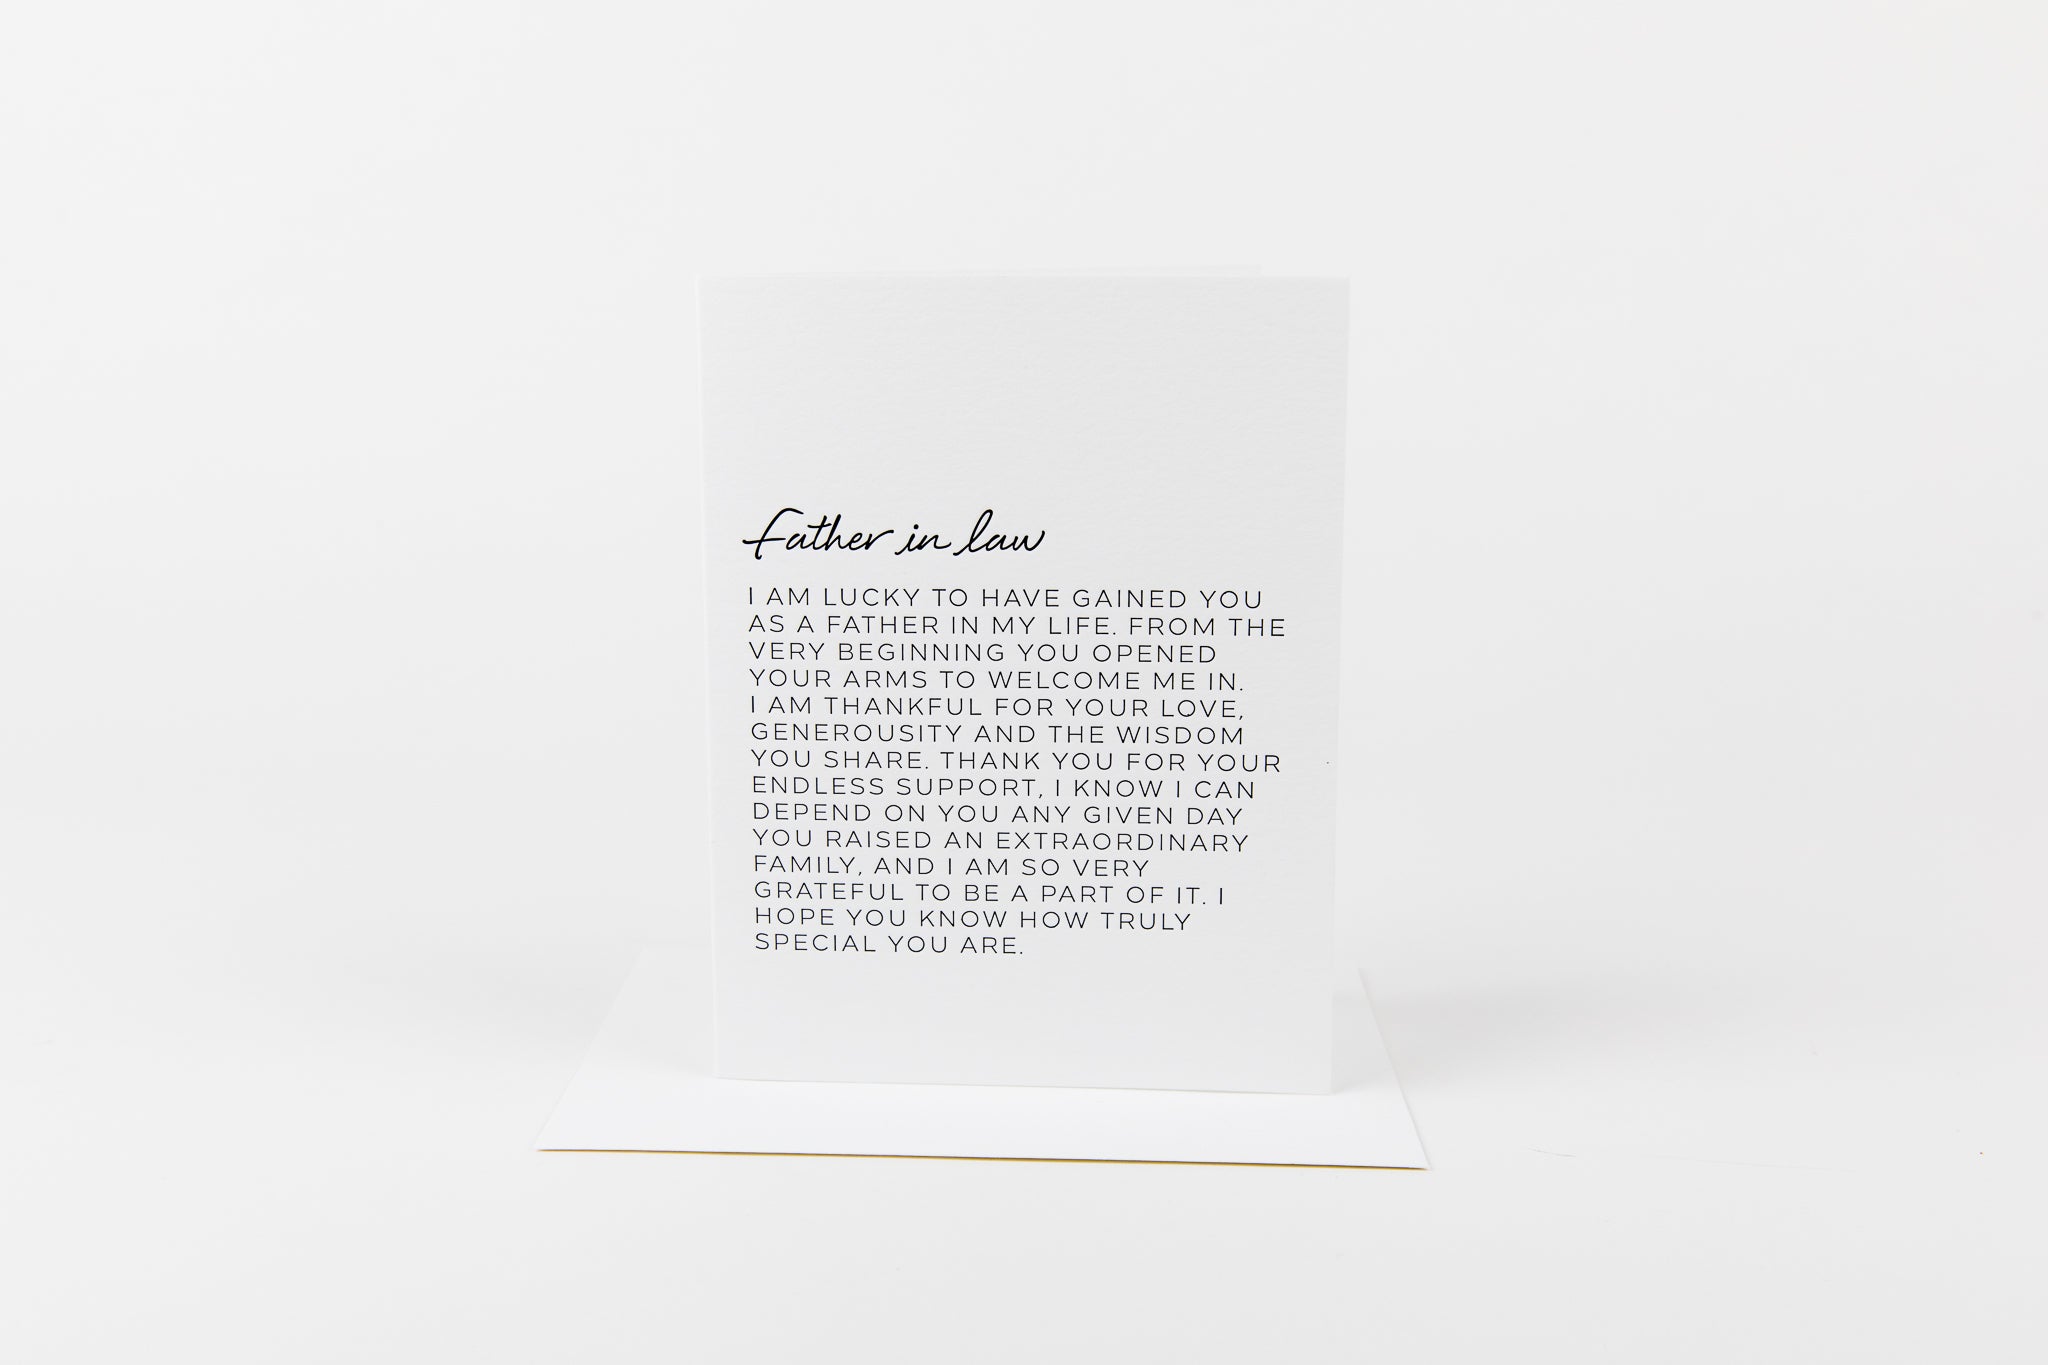 Father in law
I AM LUCKY TO HAVE GAINED YOU
AS A FATHER IN MY LIFE. FROM THE
VERY BEGINNING YOU OPENED
YOUR ARMS TO WELCOME ME IN.
I AM THANKFUL FOR YOUR LOVE,
GENEROUSITY AND THE WISDOM
YOU SHARE. THANK YOU FOR YOUR
ENDLESS SUPPORT, I KNOW I CAN
DEPEND ON YOU ANY GIVEN DAY
YOU RAISED AN EXTRAORDINARY
FAMILY, AND I AM SO VERY
GRATEFUL TO BE A PART OF IT. I
HOPE YOU KNOW HOW TRULY
SPECIAL YOU ARE.